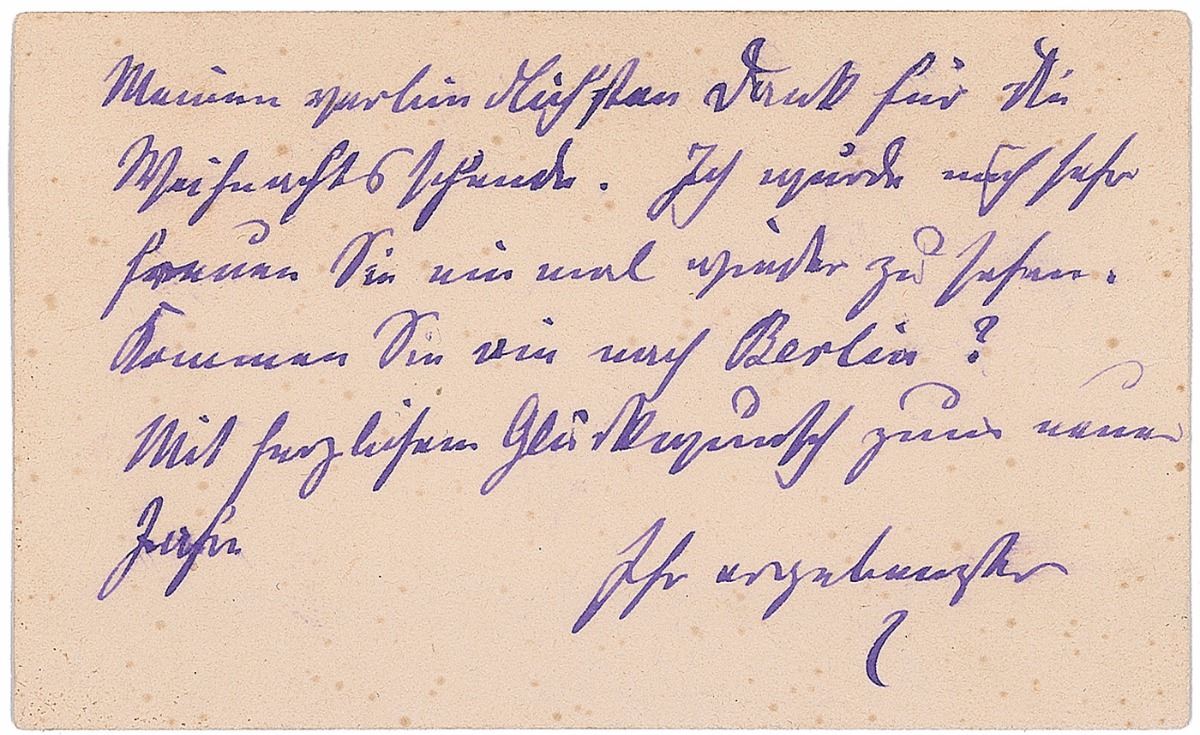 Meinen verbindlichsten Dank für die
Weihnachtsspende. Ich würde mich sehr
freuen Sie ein mal wieder zu sehen.
Kommen Sie nie nach Berlin?
Mit herzlichem Glückwunsch zum neuen
Jahr
Ihr ergebenster